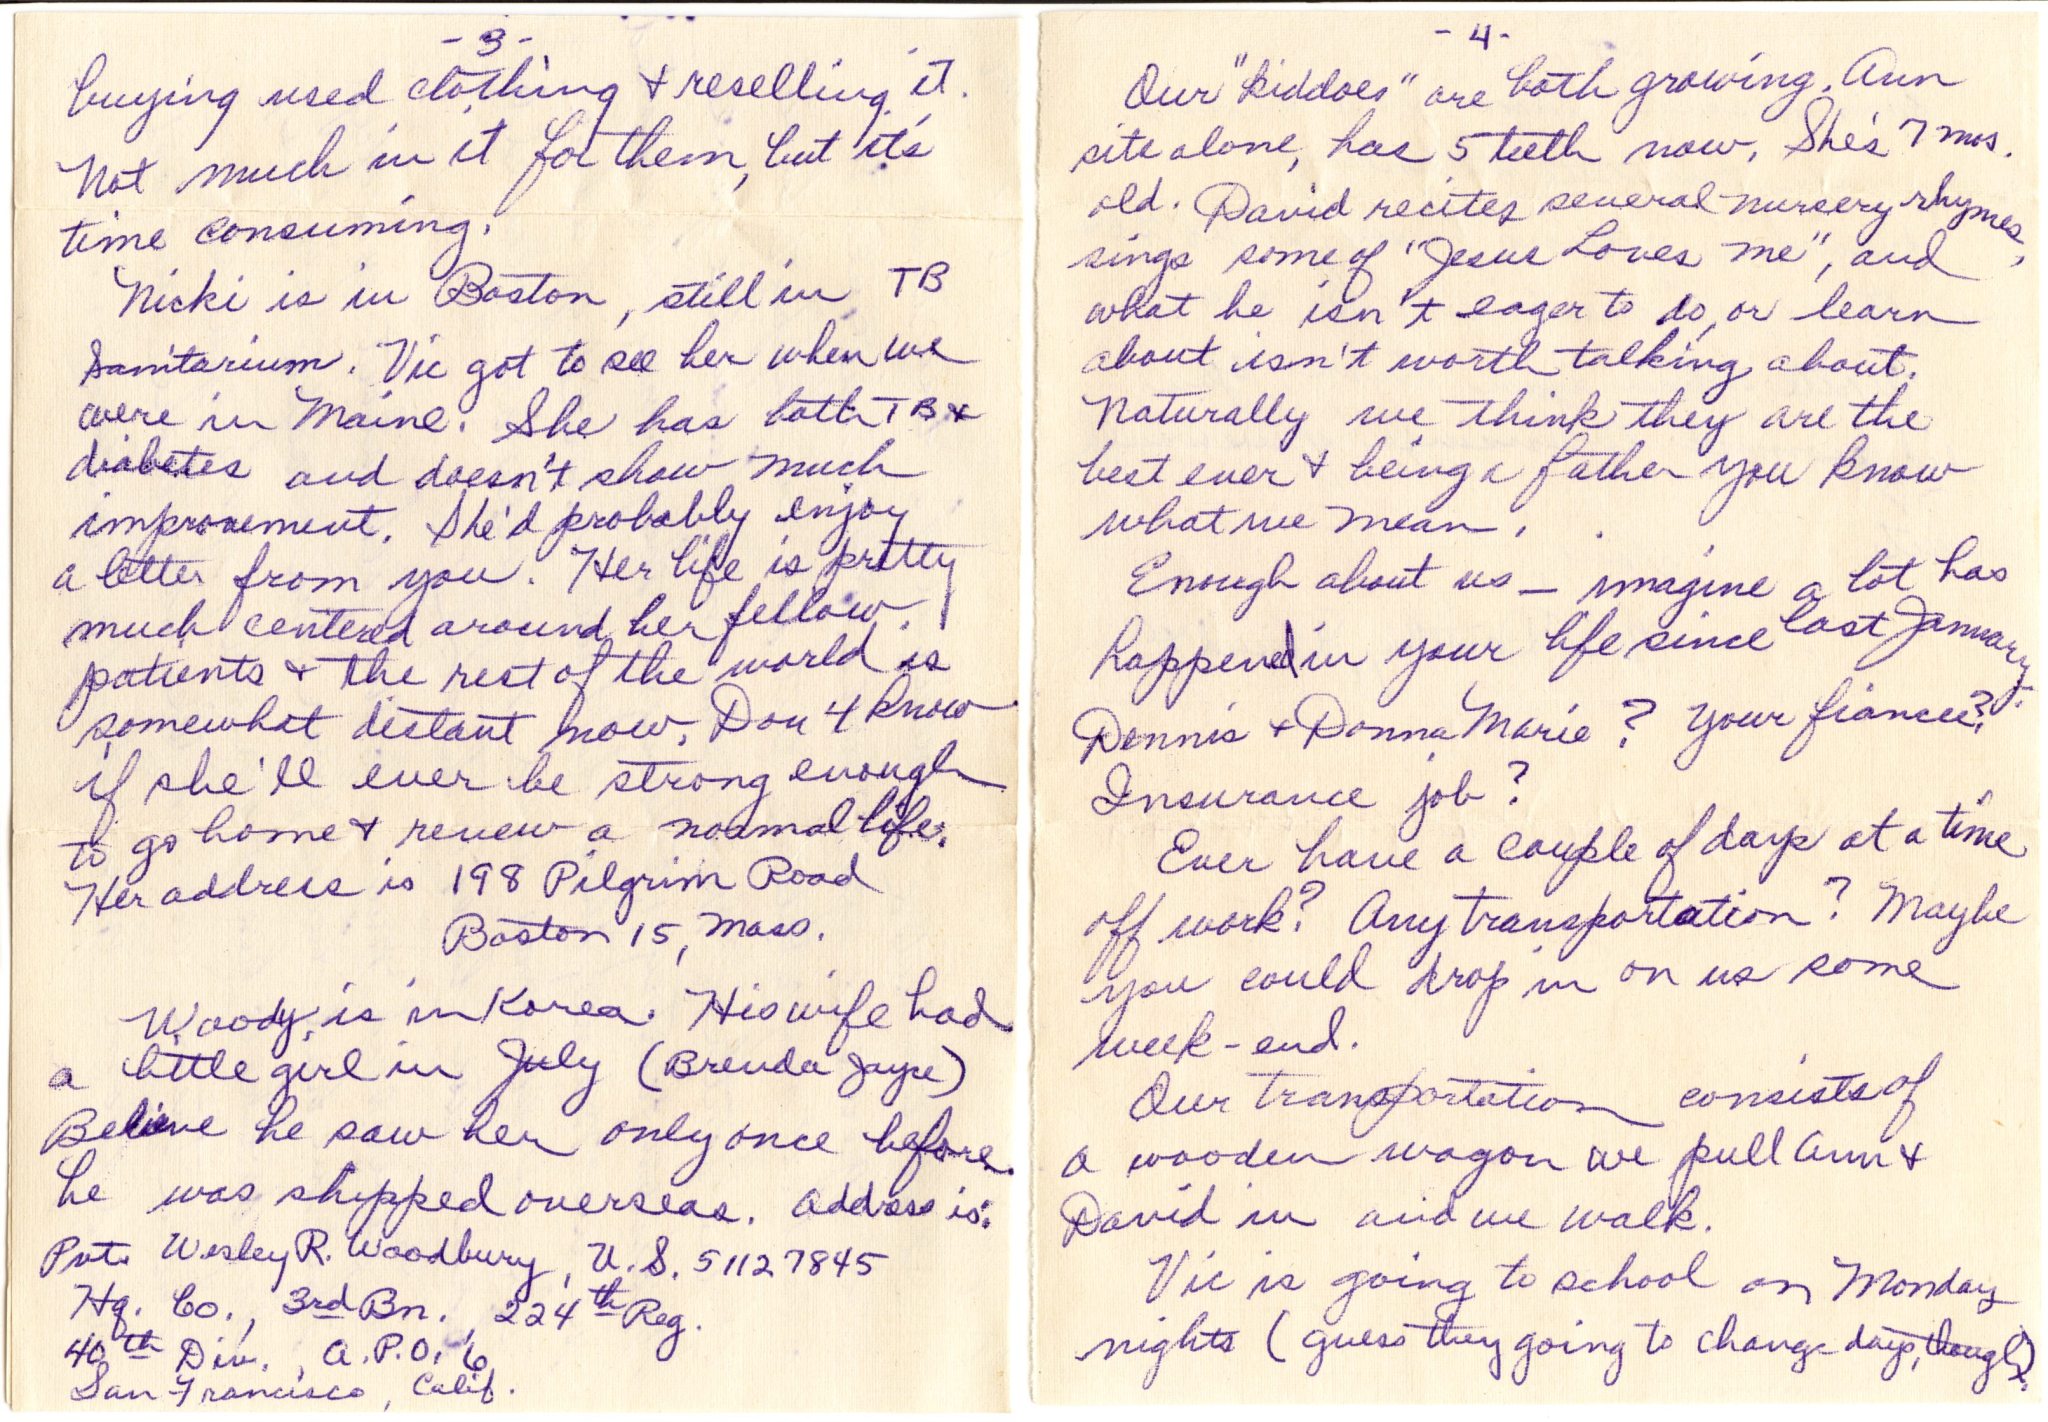 -3-
buying used clothing & reselling it.
Not much in it for them, but it's
time consuming.
Nicki is in Boston, still in TB
Sanitarium. Vic got to see her when we
were in Maine. She has both TB &
diabetes and doesn't show much
improvement. She'd probably enjoy
a letter from you. Her life is pretty
much centered around her fellow
patients & the rest of the world is
somewhat distant now. Don't know
if she'll ever be strong enough
to go home & renew a normal life.
Her address is 198 Pilgrim Road
Boston 15, Mass.
Woody is in Korea. His wife had
a little girl in July (Brenda Jayse)
Believe he saw her only once before
he was shipped overseas. Address is:
Pvt. Wesley R. Woodbury, U.S. 51127845
Hq. Co., 3rd Bn., 224th Reg.
40th Div., A.P.O. 6
San Francisco, Calif.
-4-
Our "kiddoes" are both growing. Ann
sits alone, has 5 teeth now. She's 7 mos.
old. David recites several nursery rhymes,
sings some of "Jesus Loves Me", and
what he isn't eager to do, or learn
about isn't worth talking about.
Naturally we think they are the
best ever & being a father you know
what we mean.
Enough about us — imagine a lot has
happened in your life since last January.
Dennis & Donna Marie? Your fiancee?
Insurance job?
Ever have a couple of days at a time
off work? Any transportation? Maybe
you could drop in on us some
week-end.
Our transportation consists of
a wooden wagon we pull Ann &
David in and we walk.
Vic is going to school on Monday
nights (guess they going to change days, though).